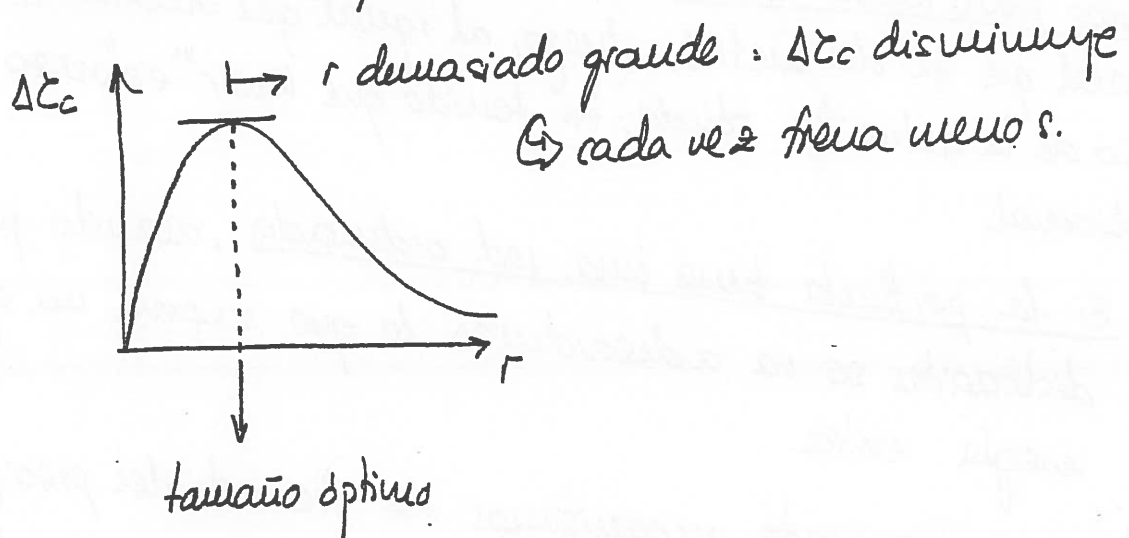 Δτc
r demasiado grande : Δτc disminuye
↳ cada vez frena menos.
r
tamaño óptimo